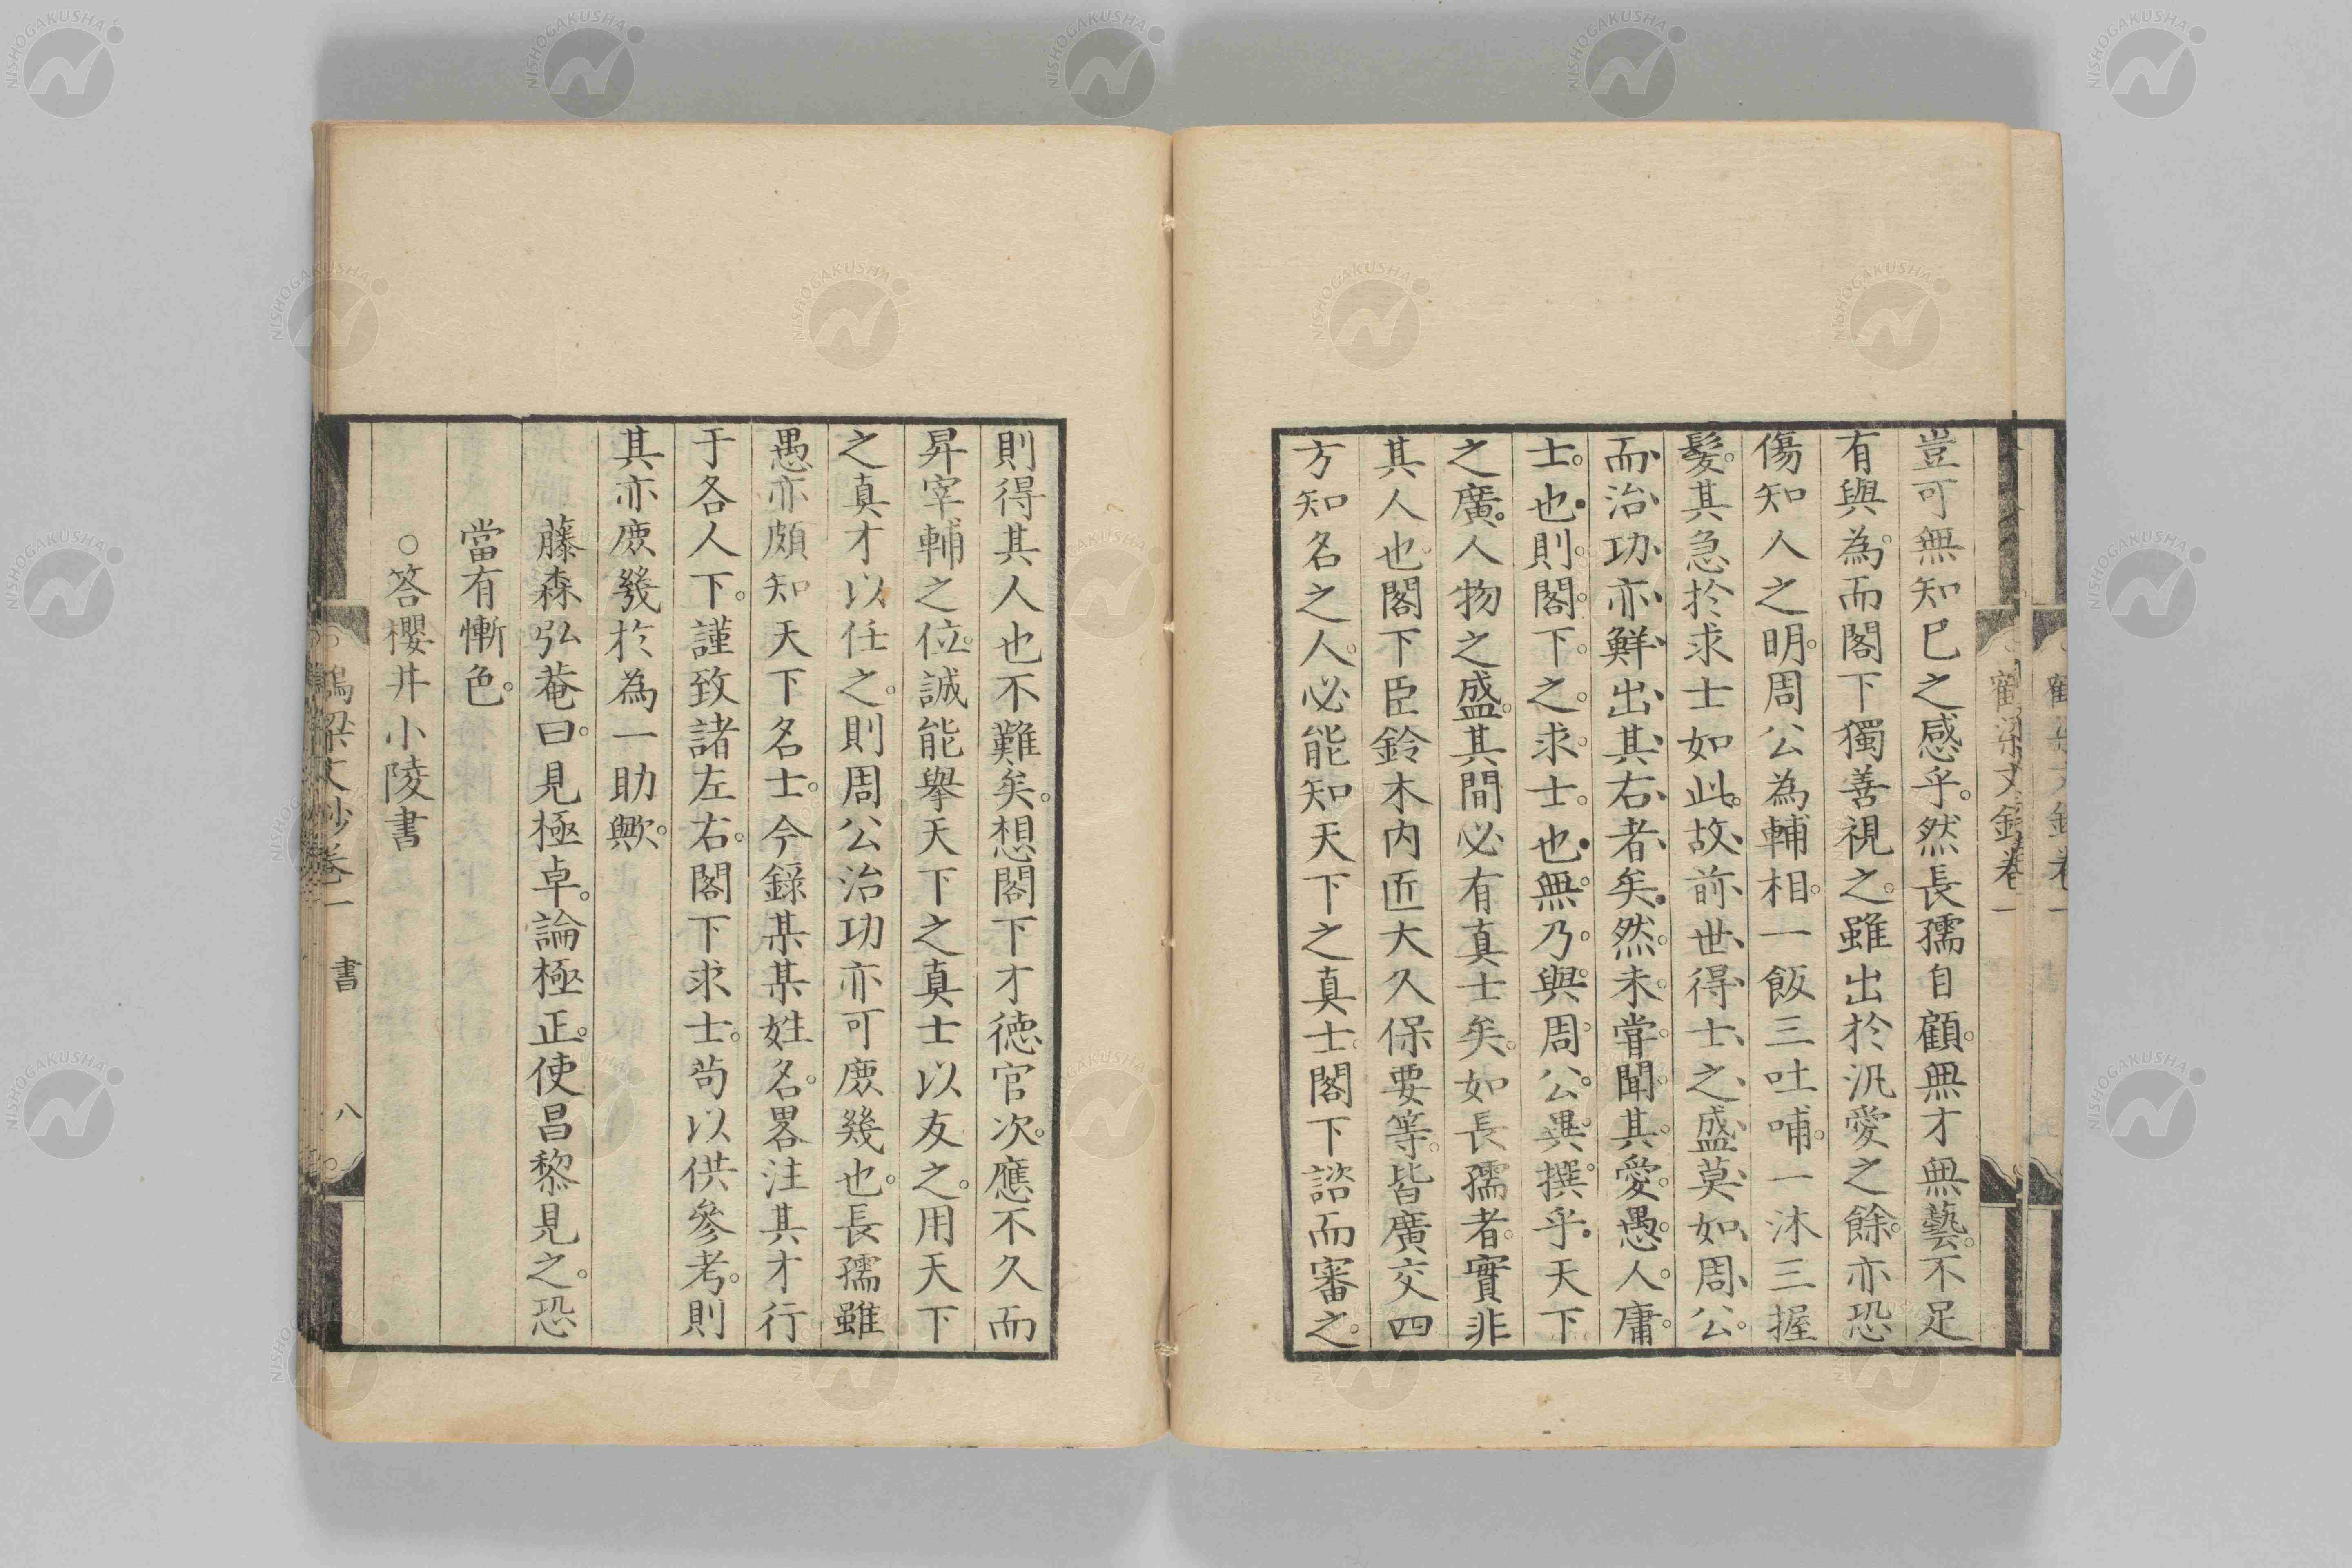 豈可無知己之感乎。然長孺自顧。無才無藝。不足
有與為。而閣下獨善視之。雖出於汎愛之餘。亦恐
傷知人之明。周公為輔相。一飯三吐哺。一沐三握
髮。其急於求士如此。故前世得士之盛莫如周公。
而治功亦鮮出其右者矣。然未嘗聞其愛愚人庸
士也。則閣下之求士也。無乃與周公異撰乎。天下
之廣。人物之盛。其間必有真士矣。如長孺者。實非
其人也。閣下臣鈴木内匠大久保要等。皆廣交四
方知名之人。必能知天下之真士。閣下諮而審之。
則得其人也不難矣。想閣下才德官次。應不久而
昇宰輔之位。誠能擧天下之真士以友之。用天下
之真才以任之。則周公治功亦可庶幾也。長孺雖
愚亦頗知天下名士。今錄某某姓名。畧注其才行
于各人下。謹致諸左右。閣下求士。苟以供參考。則
其亦庶幾於為一助歟。
藤森弘菴曰。見極卓。論極正。使昌黎見之。恐
當有慚色。
○答櫻井小陵書
鶴梁文鈔卷一 書 八
鶴梁文鈔卷一
NISHOGAKUSHA